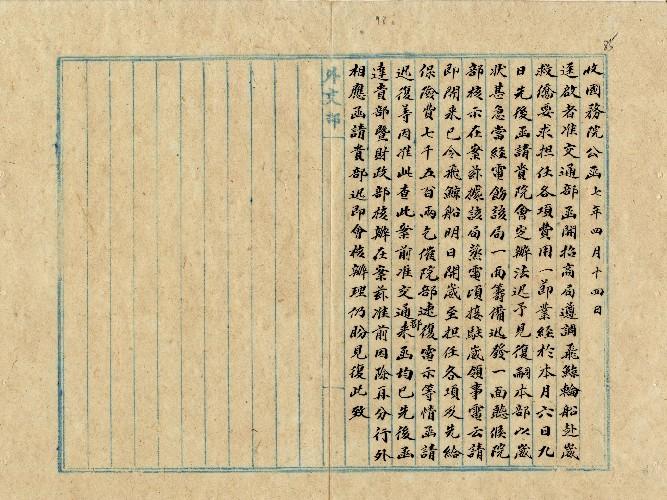 收國務院公函七年四月十四日
逕啟者准交通部函開招商局遵調飛鯨輪船赴崴
救僑要求担任各項費用一節業經於本月六日九
日先後函請貴院會定辦法迅予見復嗣本部以崴
狀甚急當經電飭該局一面籌備迅發一面聽候院
部核示在案茲據該局蒸電頃接駐崴領事電云請
即開來已令飛鯨船明日開崴至担任各項及先給
保險費七千五百兩乞催院部速復電示等情函請
迅復等因准此查此案前准交通部來函均已先後函
達貴部暨財政部核辦在案茲准前因除再分行外
相應函請貴部迅即會核辦理仍盼見復此致
外交部
85